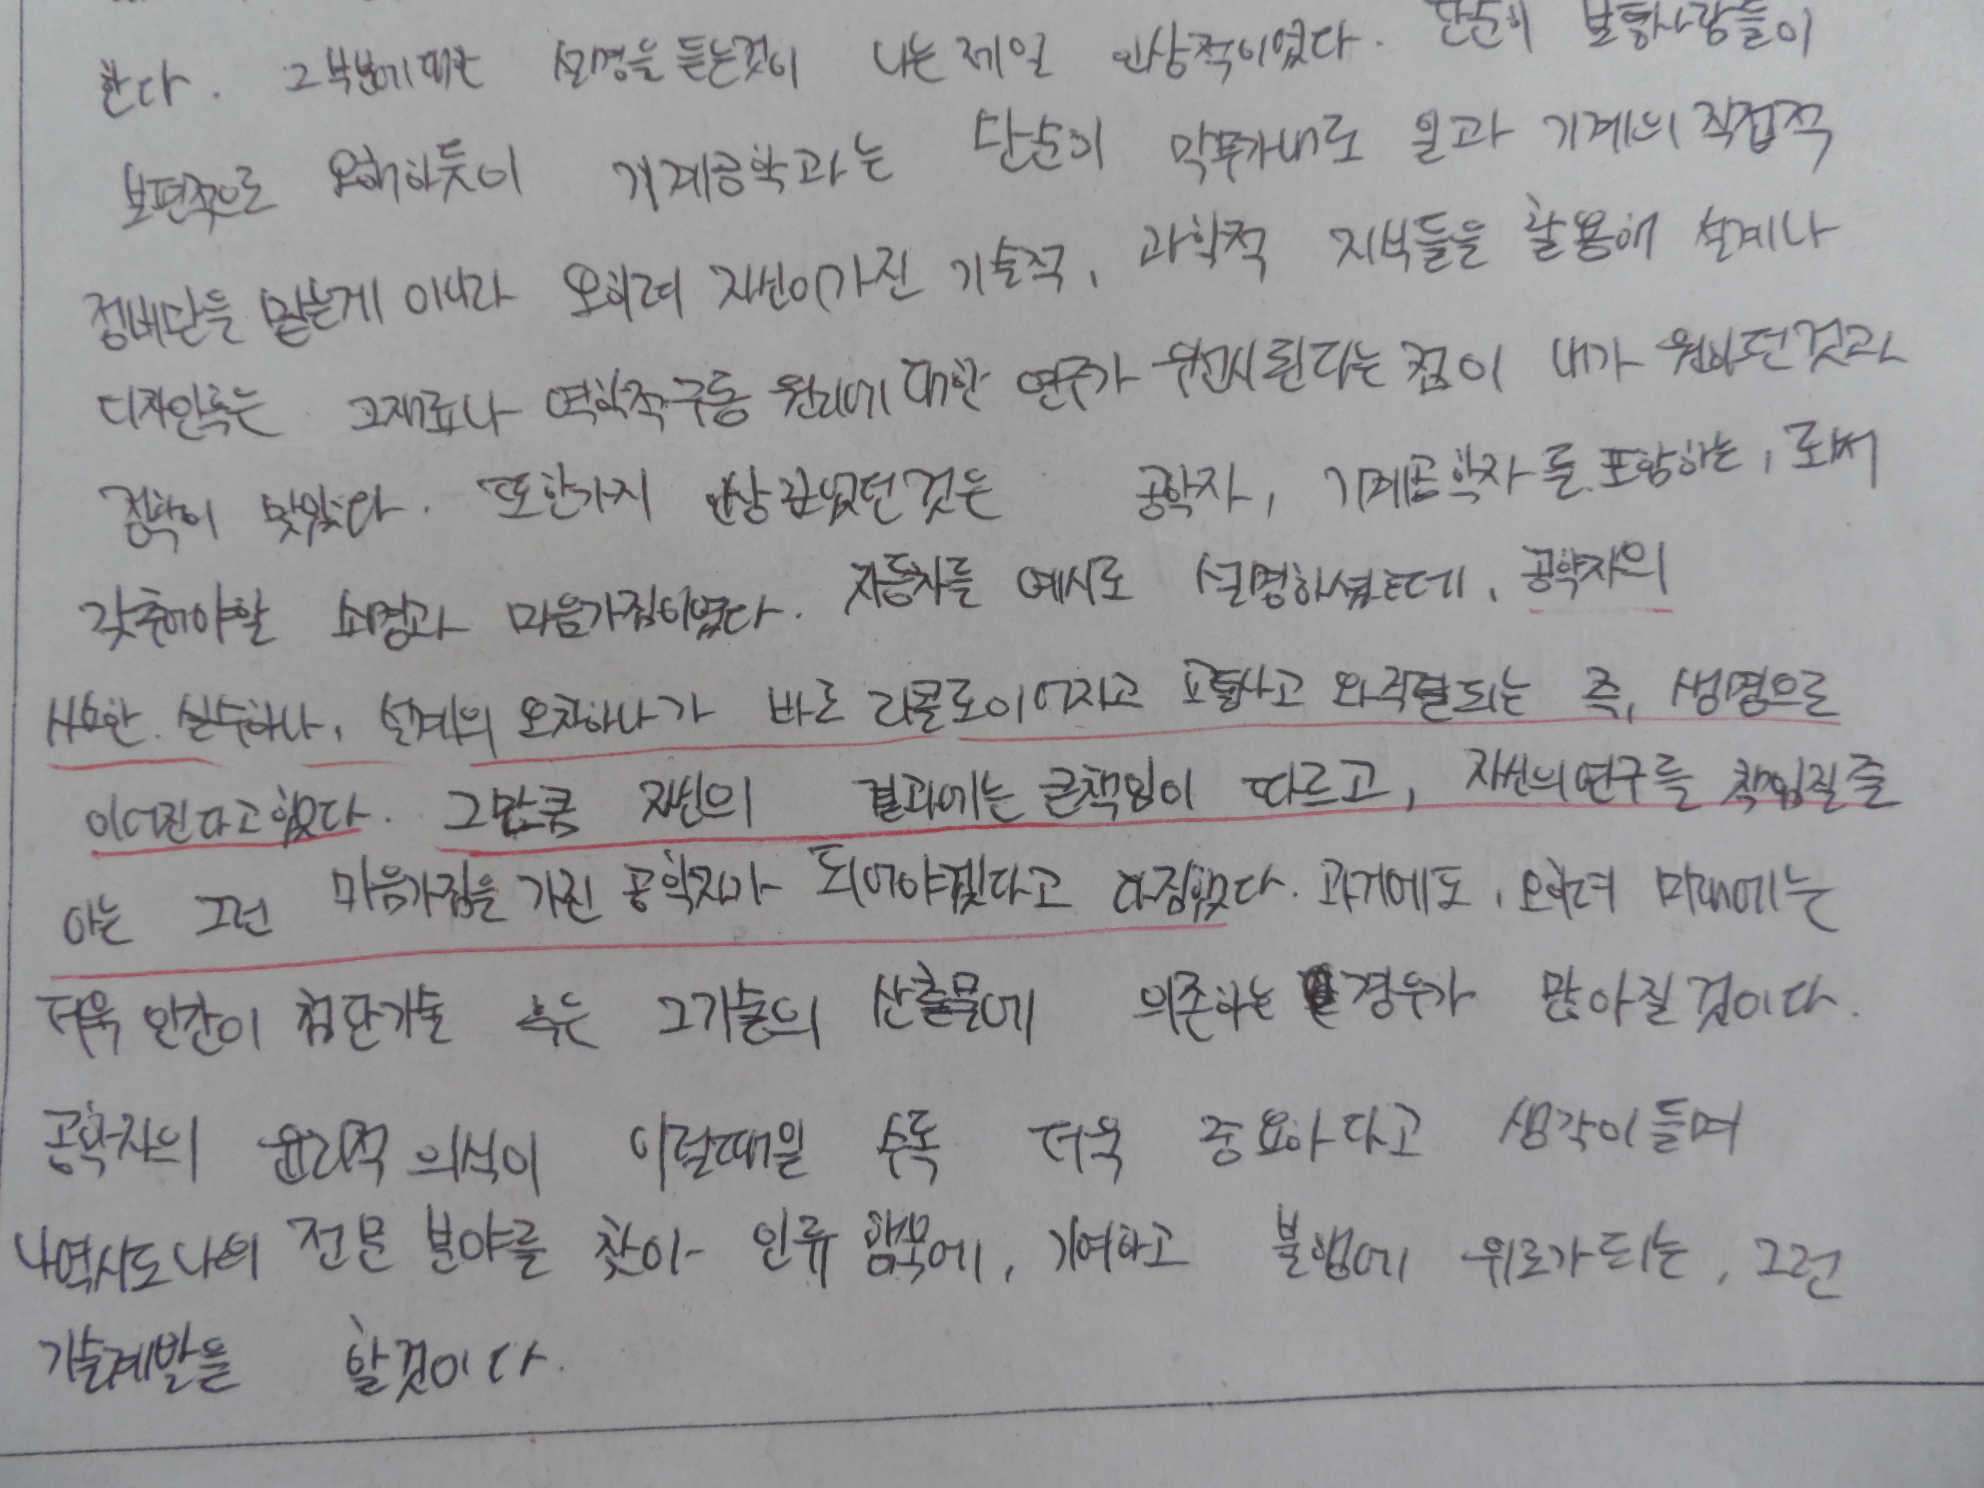 한다. 그부분에대한 설명을 듣는것이 나는 제일 인상적이었다. 단순히 보통사람들이
보편적으로 오해하듯이 기계공학과는 단순히 막무가내로 일과 기계의 직접적
정비만을 맡는게 아니라 오히려 자신이가진 기술적, 과학적 지식들을 활용해 설계나
디자인혹은 그재료나 역학적구동 원리에 대한 연구가 우선시된다는 점이 내가 원하던것과
정확히 맞았다. 또한가지 인상깊었던것은 공학자, 기계공학자를 포함하는, 로써
갖추어야할 소명과 마음가짐이였다. 자동차를 예시로 설명하셨는데, 공학자의
사소한 실수하나, 설계의 오차하나가 바로 리콜로이어지고 교통사고 와직결되는 즉, 생명으로
이어진다고했다. 그만큼 자신의 결과에는 큰책임이 따르고, 자신의연구를 책임질줄
아는 그런 마음가짐을 가진 공학자가 되어야겠다고 다짐했다. 과거에도, 오히려 미래에는
더욱 인간이 첨단기술 혹은 그기술의 산출물에 의존하는 경우가 많아질것이다.
공학자의 윤리적 의식이 이럴때일 수록 더욱 중요하다고 생각이들며
나역시도 나의 전문 분야를 찾아 인류 행복에, 기여하고 불행에 위로가되는, 그런
기술계발을 할것이다.